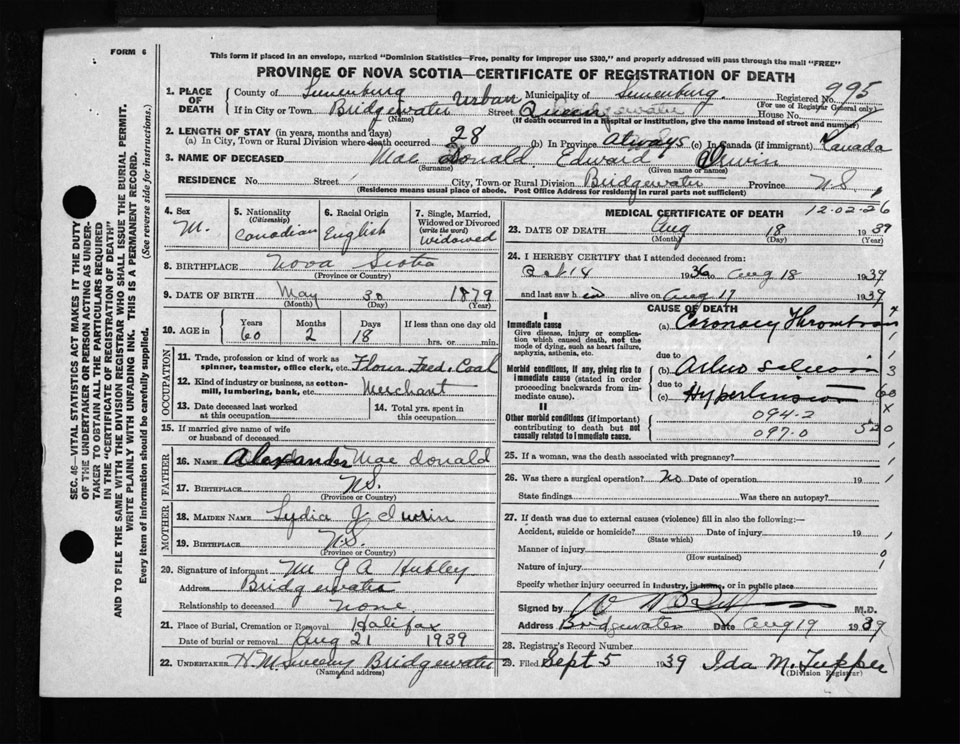 FORM 6
This form if placed in an envelope, marked "Dominion Statistics—Free, penalty for improper use $300," and properly addressed will pass through the mail "FREE"
PROVINCE OF NOVA SCOTIA—CERTIFICATE OF REGISTRATION OF DEATH
995
1. PLACE OF DEATH
County of Lunenburg Urban Municipality of Lunenburg. Registered No.
(For use of Registrar General only)
If in City or Town Bridgewater Street Queen House No.
(Name) (If death occurred in a hospital or institution, give the name instead of street and number)
2. LENGTH OF STAY (in years, months and days)
(a) In City, Town or Rural Division where death occurred 28 (b) In Province Always (c) In Canada (if immigrant) Kanada
3. NAME OF DECEASED Mac Donald Edward Irwin
(Surname) (Given name or names)
RESIDENCE No. Street City, Town or Rural Division Bridgewater Province N.S.
(Residence means usual place of abode. Post Office Address for residents in rural parts not sufficient)
4. Sex M.
5. Nationality (Citizenship) Canadian
6. Racial Origin English
7. Single, Married, Widowed or Divorced (write the word) widowed
8. BIRTHPLACE Nova Scotia
(Province or Country)
9. DATE OF BIRTH May 30 1879
(Month) (Day) (Year)
10. AGE in Years Months Days If less than one day old
60 2 18 hrs. or min.
OCCUPATION
11. Trade, profession or kind of work as spinner, teamster, office clerk, etc. Flour, Feed, Coal
12. Kind of industry or business, as cotton-mill, lumbering, bank, etc. Merchant
13. Date deceased last worked at this occupation
14. Total yrs. spent in this occupation
15. If married give name of wife or husband of deceased
FATHER
16. NAME Alexander Mac donald
17. BIRTHPLACE N.S.
(Province or Country)
MOTHER
18. MAIDEN NAME Lydia J Irwin
19. BIRTHPLACE N.S.
(Province or Country)
20. Signature of informant Mr G A Hubley
Address Bridgewater
Relationship to deceased none
21. Place of Burial, Cremation or Removal Halifax
Date of burial or removal Aug 21 1939
22. UNDERTAKER H M Sweeny Bridgewater
(Name and address)
MEDICAL CERTIFICATE OF DEATH 12-02-26
23. DATE OF DEATH Aug 18 1939
(Month) (Day) (Year)
24. I HEREBY CERTIFY that I attended deceased from:
Oct 14 1936 to Aug 18 1939
and last saw h im alive on Aug 17 1939
CAUSE OF DEATH
I
Immediate cause
Give disease, injury or complication which caused death, not the mode of dying, such as heart failure, asphyxia, asthenia, etc.
(a) Coronary Thrombosis
due to
Morbid conditions, if any, giving rise to immediate cause (stated in order proceeding backwards from immediate cause).
(b) Arterio sclerosis
due to
(c) Hypertension
II
Other morbid conditions (if important) contributing to death but not causally related to immediate cause.
094-2
097-0
25. If a woman, was the death associated with pregnancy?
26. Was there a surgical operation? No Date of operation 19
State findings Was there an autopsy?
27. If death was due to external causes (violence) fill in also the following:—
Accident, suicide or homicide? Date of injury 19
(State which)
Manner of injury
(How sustained)
Nature of injury
Specify whether injury occurred in industry, in home, or in public place
Signed by M.D.
Address Bridgewater Date Aug 19 1939
28. Registrar's Record Number
29. Filed Sept 5 1939 Ida M. Tupper
(Division Registrar)
SEC. 46—VITAL STATISTICS ACT MAKES IT THE DUTY
OF THE UNDERTAKER OR PERSON ACTING AS UNDERTAKER TO OBTAIN ALL THE PARTICULARS REQUIRED
IN THE "CERTIFICATE OF REGISTRATION OF DEATH"
AND TO FILE THE SAME WITH THE DIVISION REGISTRAR WHO SHALL ISSUE THE BURIAL PERMIT.
WRITE PLAINLY WITH UNFADING INK. THIS IS A PERMANENT RECORD.
Every item of information should be carefully supplied. (See reverse side for instructions.)